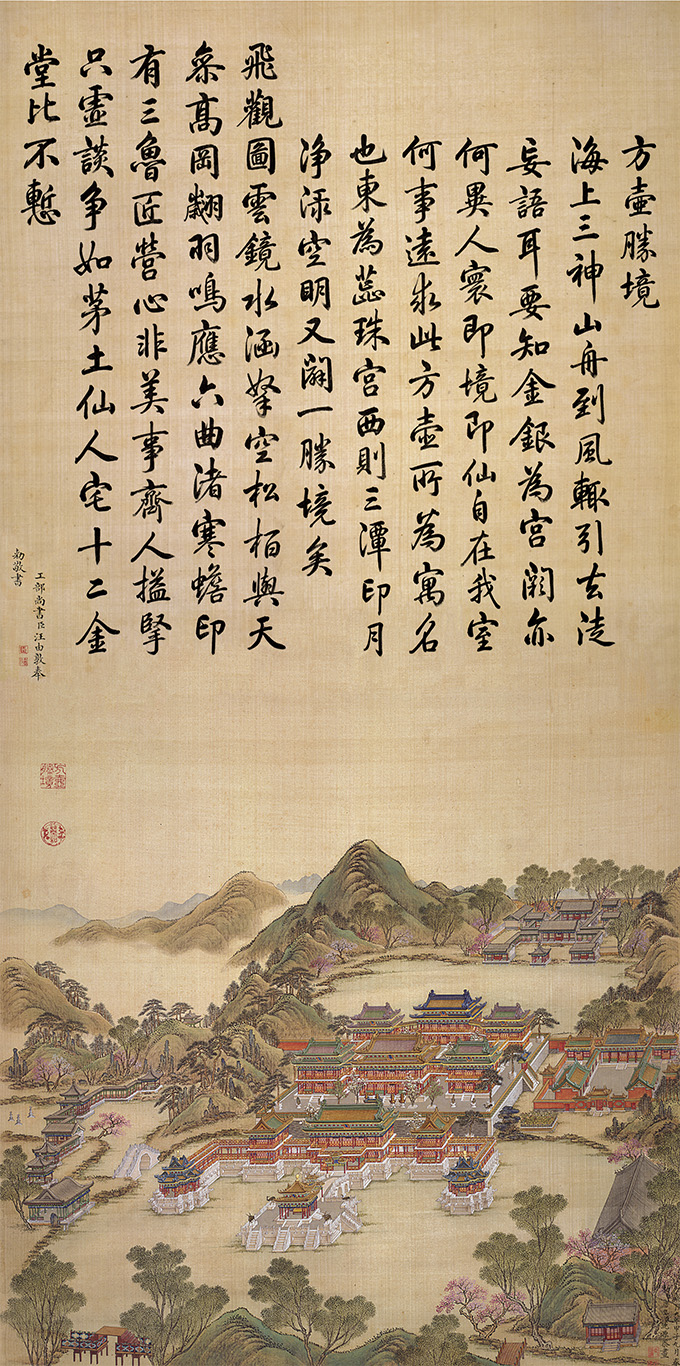 方壺勝境
海上三神山舟到風輒引去徒
妄語耳要知金銀為宮闕亦
何異人寰即境即仙自在我室
何事遠求此方壺所為寓名
也東為蕊珠宮西則三潭印月
淨淥空明又闢一勝境矣
飛觀圖雲鏡水涵拏空松柏與天
參髙岡翽羽鳴應六曲渚寒蟾印
有三魯匠營心非美事齊人搤掔
只虛談爭如茅土仙人宅十二金
堂比不慙
工部尚書臣汪由敦奉
勅敬書